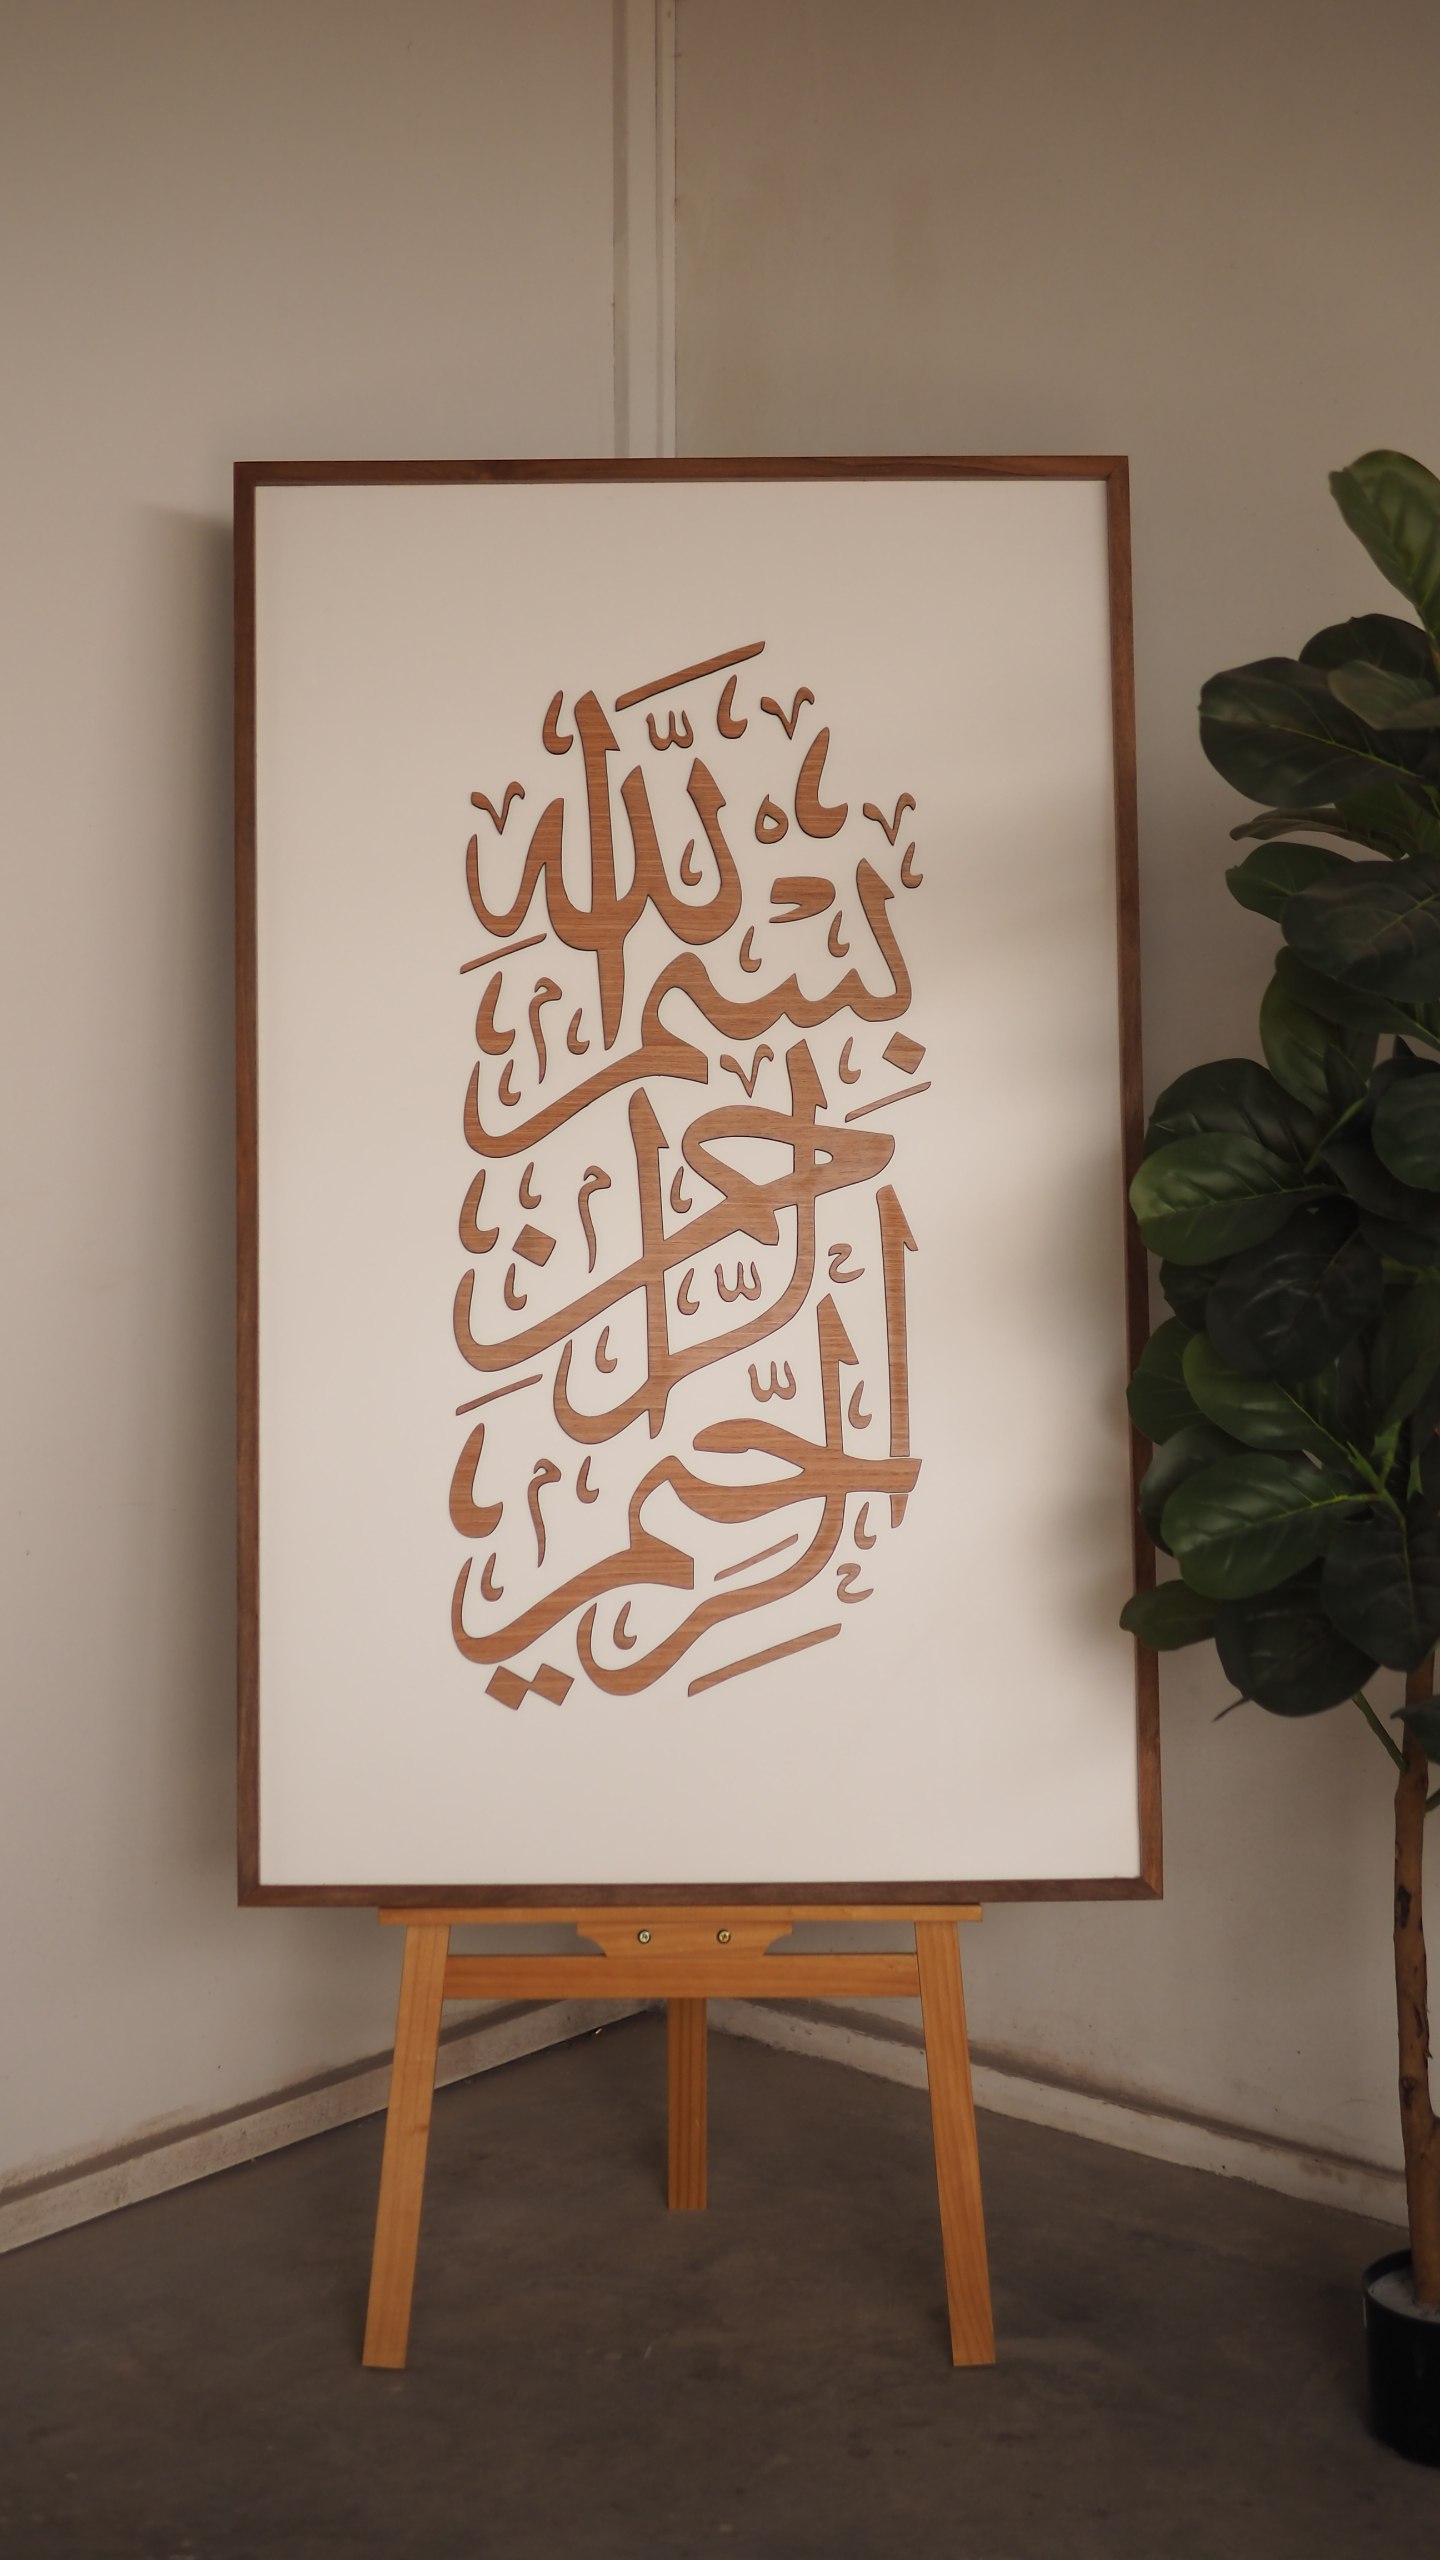 بِسْمِ اللَّهِ
الرَّحْمَنِ
الرَّحِيمِ